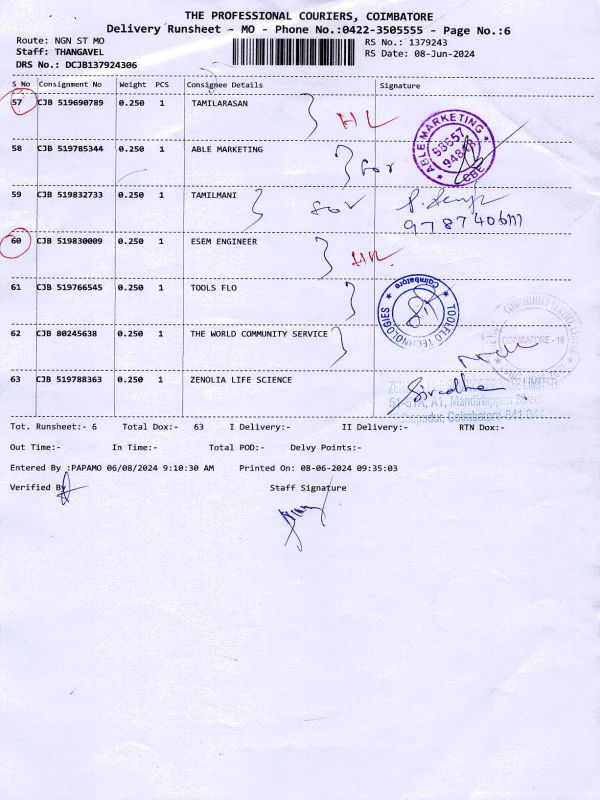 THE PROFESSIONAL COURIERS, COIMBATORE
Delivery Runsheet - MO - Phone No.:0422-3505555 - Page No.:6
Route: NGN ST MO
RS No.: 1379243
Staff: THANGAVEL
RS Date: 08-Jun-2024
DRS No.: DCJB137924306
S No Consignment No Weight PCS Consignee Details Signature
57 CJB 519690789 0.250 1 TAMILARASAN
HL
ABLE MARKETING
98657
CBE
58 CJB 519785344 0.250 1 ABLE MARKETING
for
59 CJB 519832733 0.250 1 TAMILMANI
for
60 CJB 519830009 0.250 1 ESEM ENGINEER
61 CJB 519766545 0.250 1 TOOLS FLO
Coimbatore
TOOLFLO TECHNOLOGIES
62 CJB 80245638 0.250 1 THE WORLD COMMUNITY SERVICE
COIMBATORE - 18
63 CJB 519788363 0.250 1 ZENOLIA LIFE SCIENCE
LIMITED
51-51A, A1, Mandiriappan Street
Coimbatore-641
Tot. Runsheet:- 6 Total Dox:- 63 I Delivery:- II Delivery:- RTN Dox:-
Out Time:- In Time:- Total POD:- Delvy Points:-
Entered By :PAPAMO 06/08/2024 9:10:30 AM Printed On: 08-06-2024 09:35:03
Verified By
Staff Signature